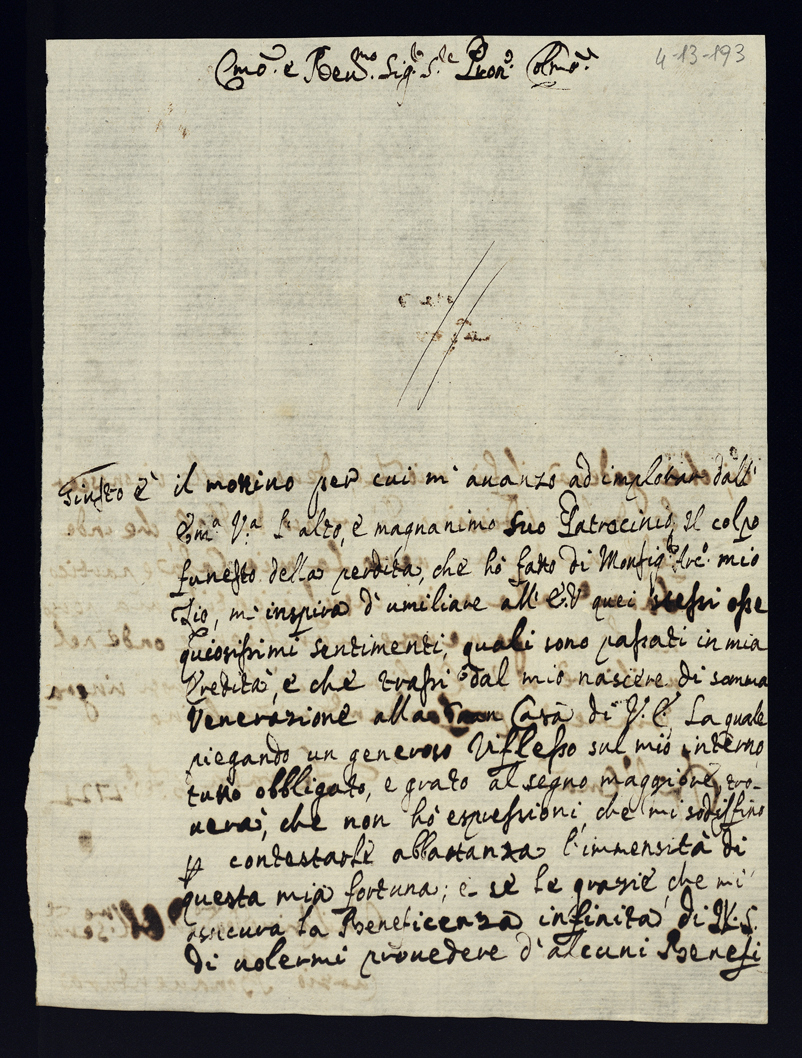 Emo. e Reu.mo Sig.r S.re Pron. Colmo.
4-13-193
Giusto è il motiuo per cui mi auanzo ad implorar dall'
E.ma V.a l'alto, e magnanimo suo Patrocinio, Il colpo
funesto della perdita, che hò fatto di Monsig.r Arc. mio
Zio, mi inspira d'umiliare all' E.V quei stessi osse
quiosissimi sentimenti, quali sono passati in mia
Eredità, e che trassi dal mio nascere di somma
Venerazione alla Casa di V.E. La quale
piegando un generoso riflesso sul mio interno
tutto obbligato, e grato al segno maggiore, tro-
uerà, che non hò espressioni, che mi sodisfino
contestarle abbastanza l'immensità di
questa mia fortuna; e se le grazie, che mi
assicura la Beneficenza infinita di V.S.
di uolermi prouedere d'alcuni Benefi